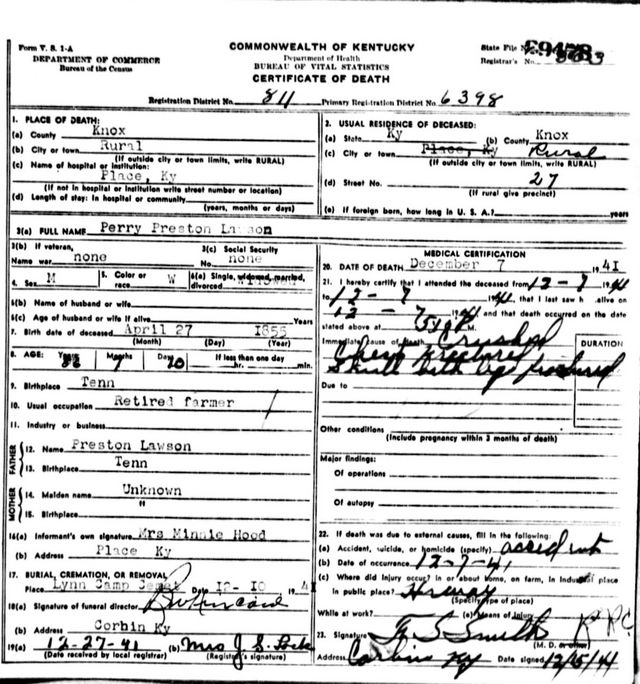 Form V. S. 1-A
DEPARTMENT OF COMMERCE
Bureau of the Census
COMMONWEALTH OF KENTUCKY
Department of Health
BUREAU OF VITAL STATISTICS
CERTIFICATE OF DEATH
State File No.
Registrar's No.
Registration District No. 811 Primary Registration District No. 6398
1. PLACE OF DEATH:
(a) County Knox
(b) City or town Rural
(If outside city or town limits, write RURAL)
(c) Name of hospital or institution:
Place, Ky
(If not in hospital or institution write street number or location)
(d) Length of stay: In hospital or community
(years, months or days)
2. USUAL RESIDENCE OF DECEASED:
(a) State Ky (b) County Knox
(c) City or town Place, Ky Rural
(If outside city or town limits, write RURAL)
(d) Street No. 27
(If rural give precinct)
(e) If foreign born, how long in U. S. A.? years
3(a) FULL NAME Perry Preston Lawson
3(b) If veteran, Name war none
3(c) Social Security No. none
4. Sex M 5. Color or race W 6(a) Single, widowed, married, divorced Widowed
6(b) Name of husband or wife
6(c) Age of husband or wife if alive Years
7. Birth date of deceased April 27 1855
(Month) (Day) (Year)
8. AGE: Years 86 Months 7 Days 10 If less than one day hr. min.
9. Birthplace Tenn
10. Usual occupation Retired farmer
11. Industry or business
FATHER
12. Name Preston Lawson
13. Birthplace Tenn
MOTHER
14. Maiden name Unknown
15. Birthplace "
16(a) Informant's own signature Mrs Minnie Hood
(b) Address Place Ky
17. BURIAL, CREMATION, OR REMOVAL
Place Lynn Camp Cemet 12-10 1941
18(a) Signature of funeral director
(b) Address Corbin Ky
19(a) 12-27-41 (b) Mrs J. S.
(Date received by local registrar) (Registrar's signature)
MEDICAL CERTIFICATION
20. DATE OF DEATH December 7 1941
21. I hereby certify that I attended the deceased from 12-7 1941
to 12-7 1941, that I last saw h alive on
12-7 1941 and that death occurred on the date
stated above at M.
Immediate cause of death Crushed
Chest fractured
Skull both legs fractured
DURATION
Due to
Other conditions
(Include pregnancy within 3 months of death)
Major findings:
Of operations
Of autopsy
22. If death was due to external causes, fill in the following:
(a) Accident, suicide, or homicide (specify) accident
(b) Date of occurrence 12-7-41
(c) Where did injury occur? In or about home, on farm, in industrial place
in public place?
(Specify type of place)
While at work? (e) Means of injury
23. Signature Smith
(M. D. or other)
Address Corbin Ky Date signed 12/15/41